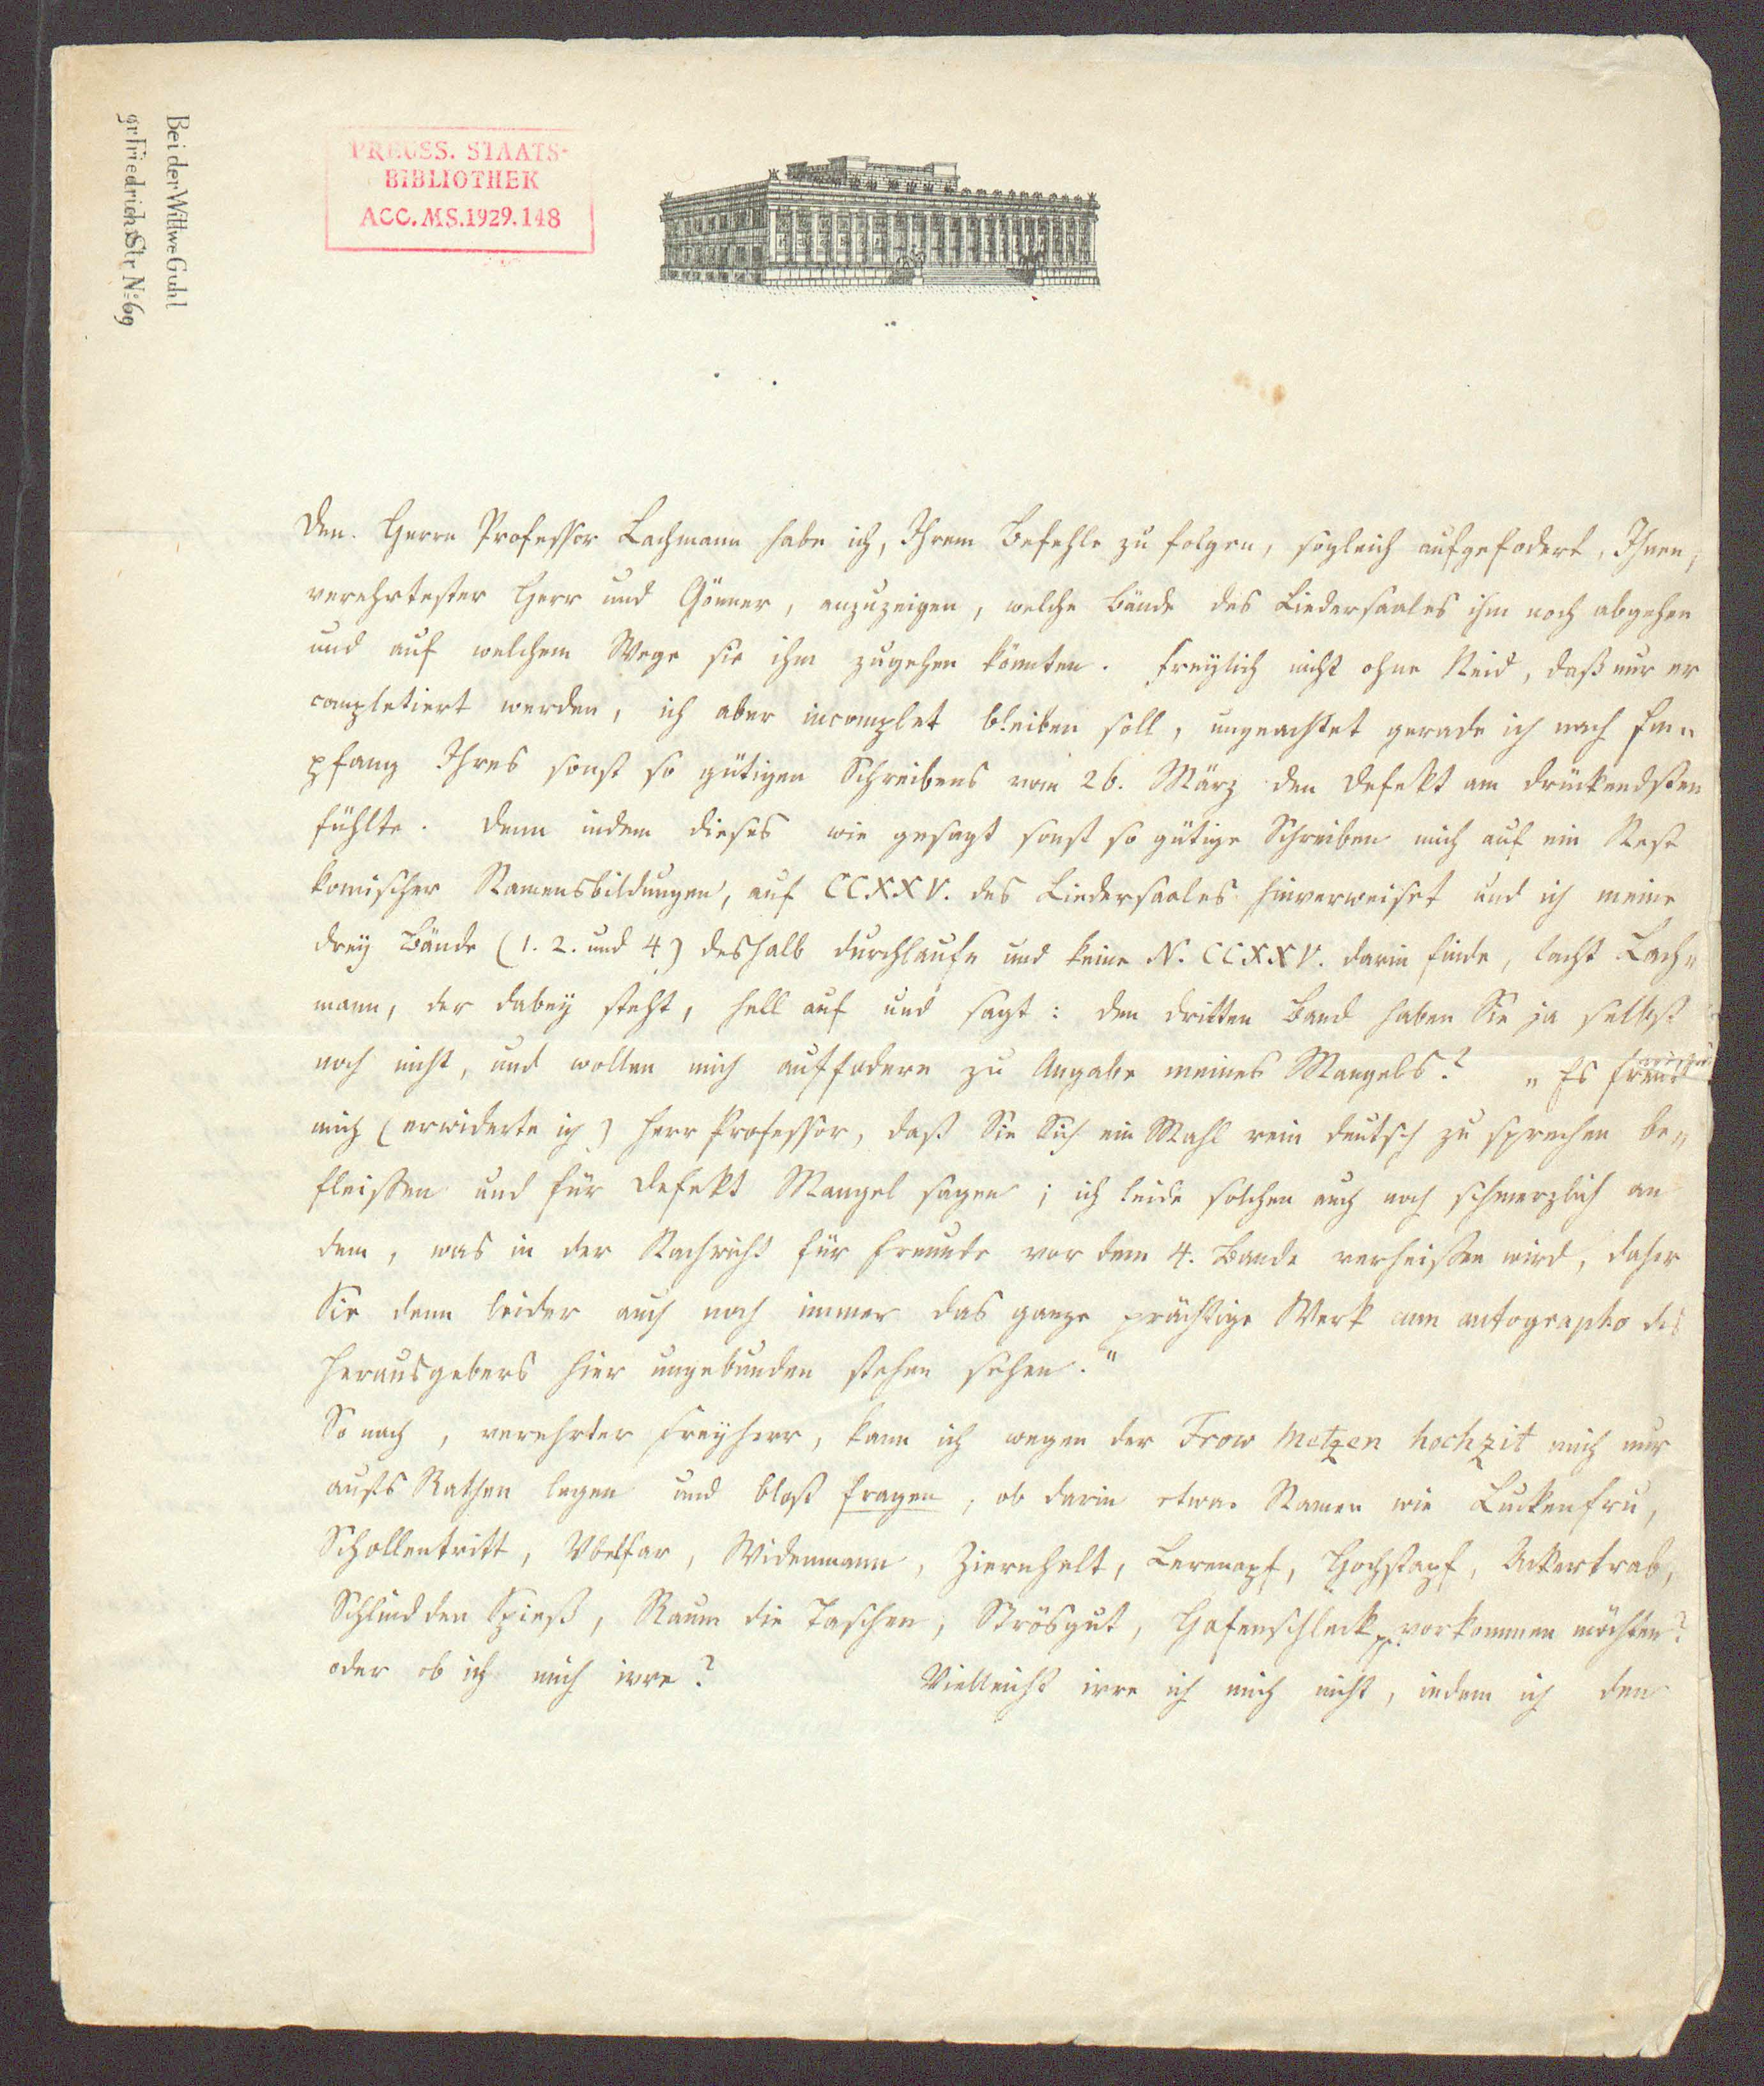 Bei der Wittwe Guhl
gr Friedrichs Str. No: 69
PREUSS. STAATS-
BIBLIOTHEK
ACC. MS. 1929. 148
Den Herrn Professor Lachmann habe ich, Ihrem Befehle zu folgen, sogleich aufgefodert, Ihnen,
verehrtester Herr und Gönner, anzuzeigen, welche Bände des Liedersaales ihm noch abgehen
und auf welchem Wege sie ihm zugehen könnten. Freylich nicht ohne Neid, daß nur er
completiert werden, ich aber incomplet bleiben soll, ungeachtet gerade ich nach Em=
pfang Ihres sonst so gütigen Schreibens vom 26. März den Defekt am drückendsten
fühlte. Denn indem dieses wie gesagt sonst so gütige Schreiben mich auf ein Nest
komischer Namensbildungen, auf CCXXV. des Liedersaales hinverweiset und ich meine
drey Bände (1. 2. und 4) deshalb durchlaufe und keine N. CCXXV. darin finde, lacht Lach=
mann, der dabey steht, hell auf und sagt: den dritten Band haben Sie ja selbst
noch nicht, und wollen mich auffodern zu Angabe meines Mangels? „Es freut
mich (erwiderte ich) Herr Professor, daß Sie Sich ein Mahl rein deutsch zu sprechen be=
fleissen und für Defekt Mangel sagen; ich leide solchen auch noch schmerzlich an
dem, was in der Nachricht für Freunde vor dem 4. Bande verheissen wird, daher
Sie denn leider auch noch immer das ganze prächtige Werk cum autographo des
Herausgebers hier ungebunden stehen sehen."
So nach, verehrter Freyherr, kann ich wegen der Frow Metzen hochzit mich nur
aufs Rathen legen und bloß fragen, ob darin etwa Namen wie Luckenfru,
Schollentritt, Vbelfar, Widenmann, Ziernhelt, Lerenapf, Hochstapf, Ackertrab,
Schlind den Spieß, Raum die Taschen, Strösgut, Hafenschleck pp. vorkommen möchten?
oder ob ich mich irre? Vielleicht irre ich mich nicht, indem ich den